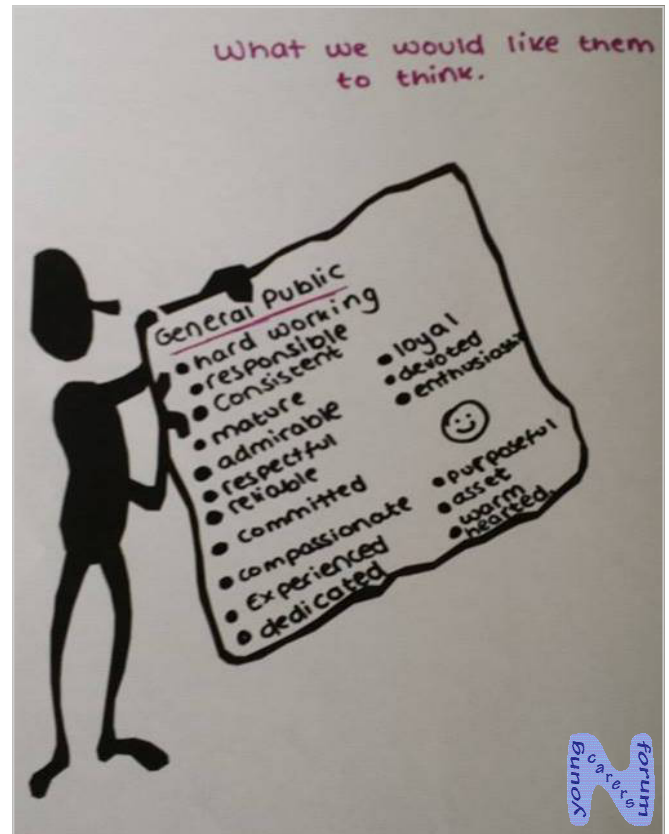 What we would like them
to think.
General Public
• hard working
• responsible
• Consistent
• mature
• admirable
• respectful
• reliable
• committed
• compassionate
• Experienced
• dedicated
• loyal
• devoted
• enthusiastic
• purposeful
• asset
• warm
hearted.
young
carers
forum